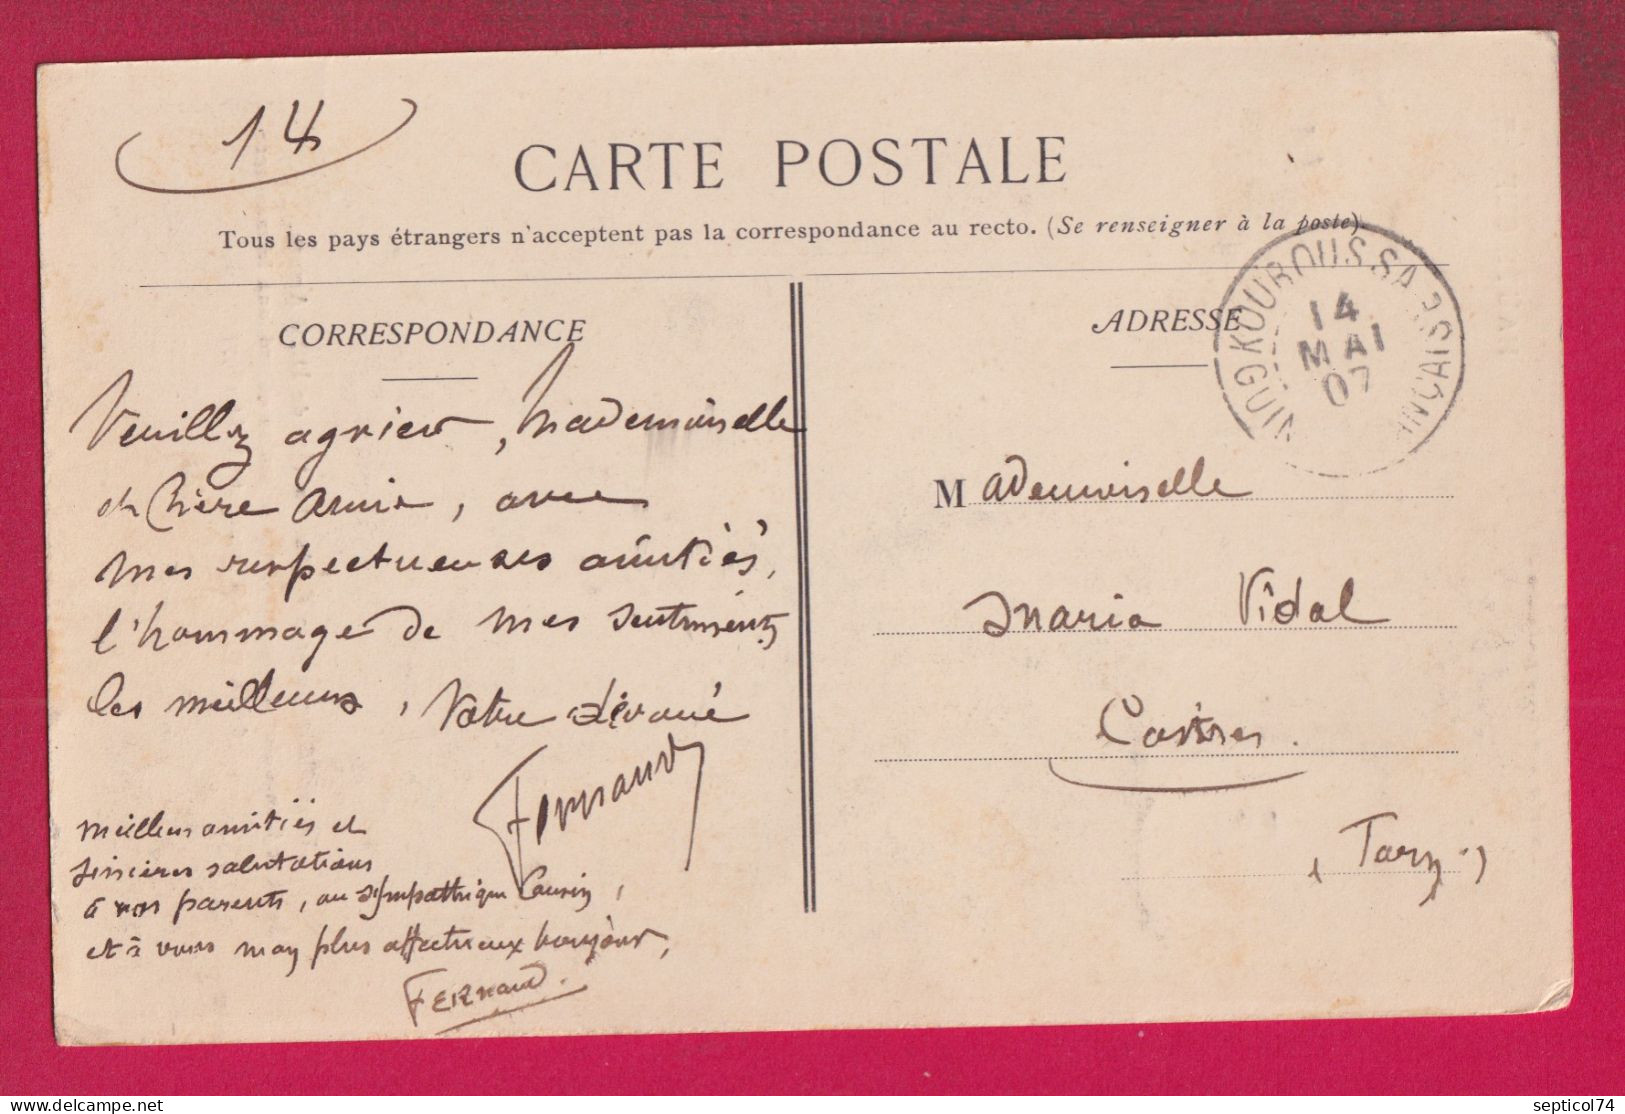 14
CARTE POSTALE
Tous les pays étrangers n'acceptent pas la correspondance au recto. (Se renseigner à la poste).
CORRESPONDANCE
Veuillez agréer, Mademoiselle
et Chère Amie, avec
mes respectueuses amitiés,
l'hommage de mes sentiments
les meilleurs, Votre dévoué
Fernand
Meilleurs amitiés et
sincères salutations
à vos parents, au sympathique Cousin,
et à vous mon plus affectueux bonjour,
Fernand.
ADRESSE
KOUROUSSA
14
MAI
07
Mademoiselle
Maria Vidal
Castres.
(Tarn)
Delcampe.net
septicol74